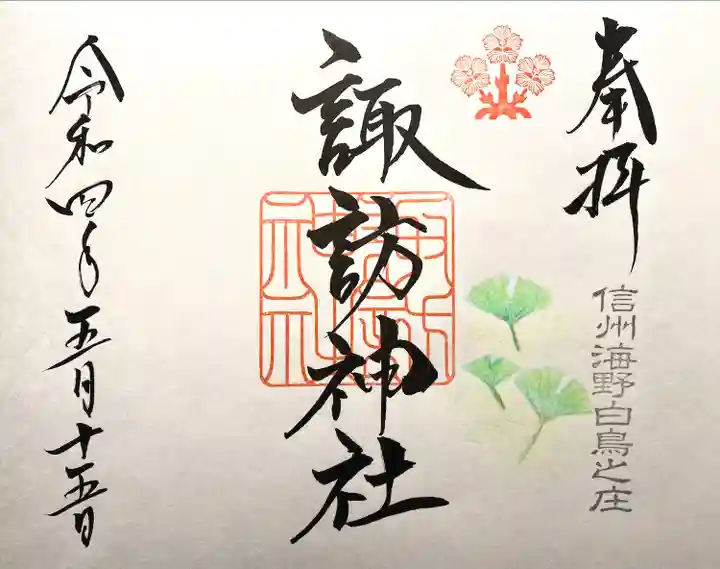 奉拝
信州海野白鳥之庄
諏訪神社
令和四年五月十五日